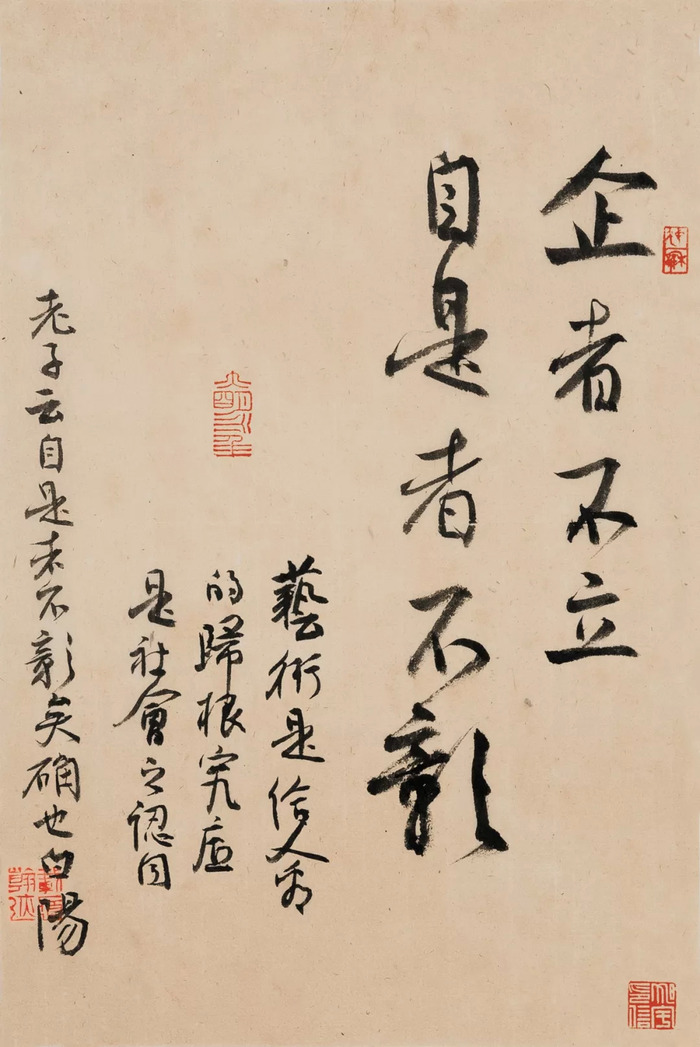 企者不立
自是者不彰
藝術是給人看
的歸根究底
是社會之認同
老子云自是者不彰矣确也白陽